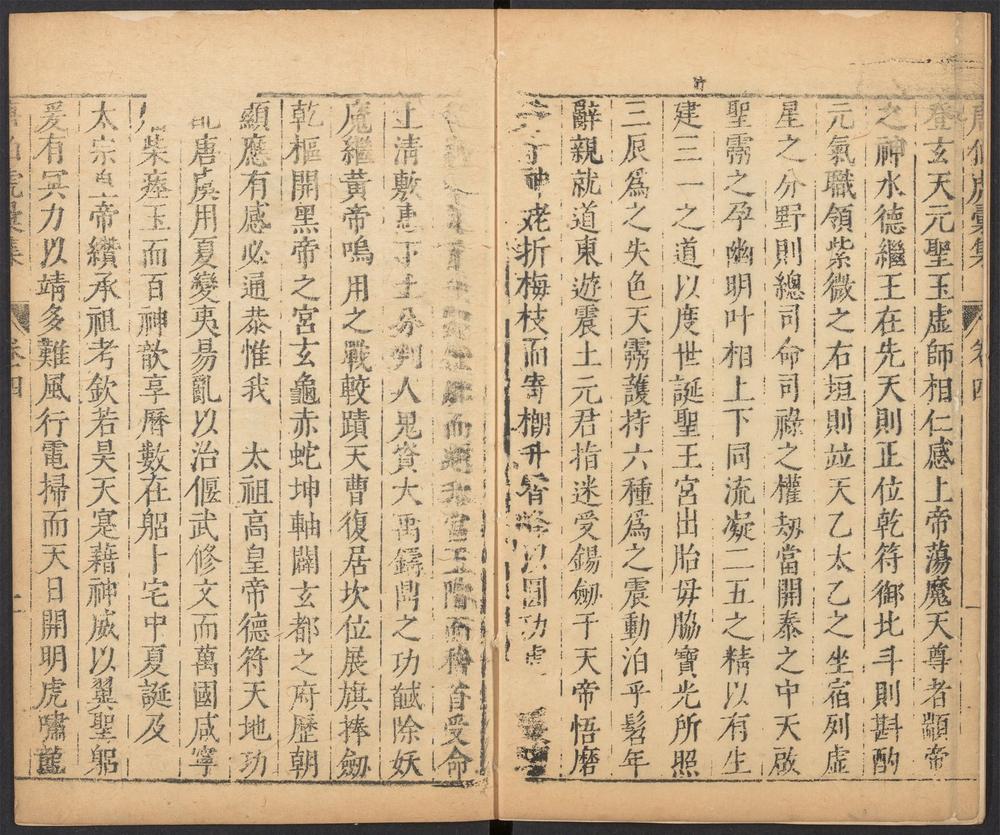 登玄天元聖玉虛師相仁感上帝蕩魔天尊者顓帝
之神水德繼王在先天則正位乾符御北斗則斟酌
元氣職領紫微之右垣則竝天乙太乙之坐宿列虛
星之分野則總司命司祿之權刼當開泰之中天啟
聖霱之孕幽明叶相上下同流凝二五之精以有生
建三一之道以度世誕聖王宮出胎母脇寶光所照
三辰爲之失色天霱護持六種爲之震動泊乎髫年
辭親就道東遊震土元君指迷受錫劒于天帝悟磨
神姥折梅枝而寄榔升
圓功
而
受命
上清敷
分判人鬼資大禹鑄鼎之功馘除妖
魔繼黃帝鳴用之戰較蹟天曹復居坎位展旗捧劒
乾樞開黑帝之宮玄龜赤蛇坤軸闢玄都之府歷朝
顯應有感必通恭惟我 太祖高皇帝德符天地功
唐虞用夏變夷易亂以治偃武修文而萬國咸寧
柴瘞玉而百神歆享曆數在躬十宅中夏誕及
太宗 帝纘承祖考欽若昊天寔藉神威以翼聖躬
爰有冥力以靖多難風行電掃而天日開明虎嘯龍
集
卷四